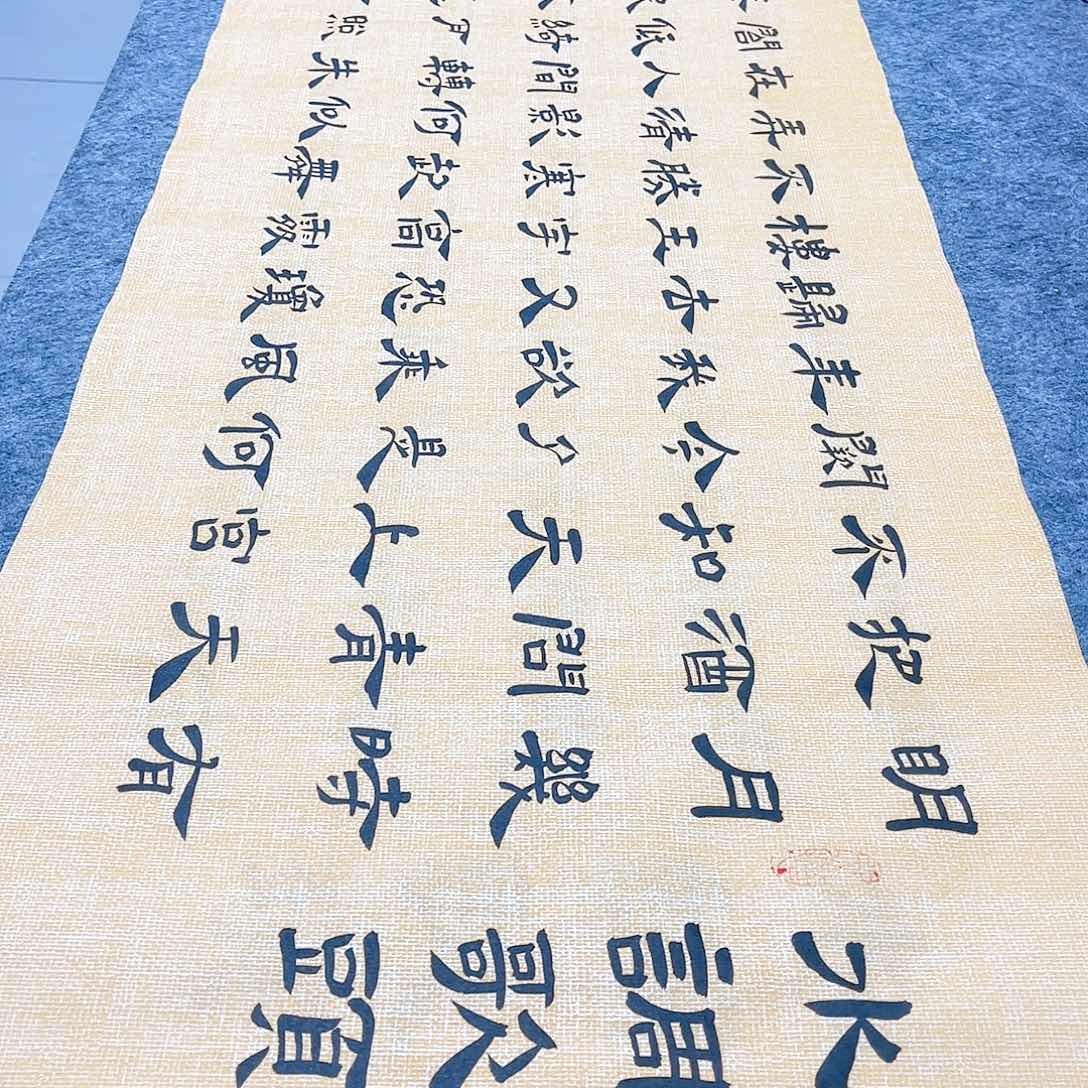 水調歌頭
明月幾時有
把酒問青天
不知天上宮
闕今夕是何
年我欲乘風
歸去又恐瓊
樓玉宇高處
不勝寒起舞
弄清影何似
在人間轉朱
閣低綺戶照